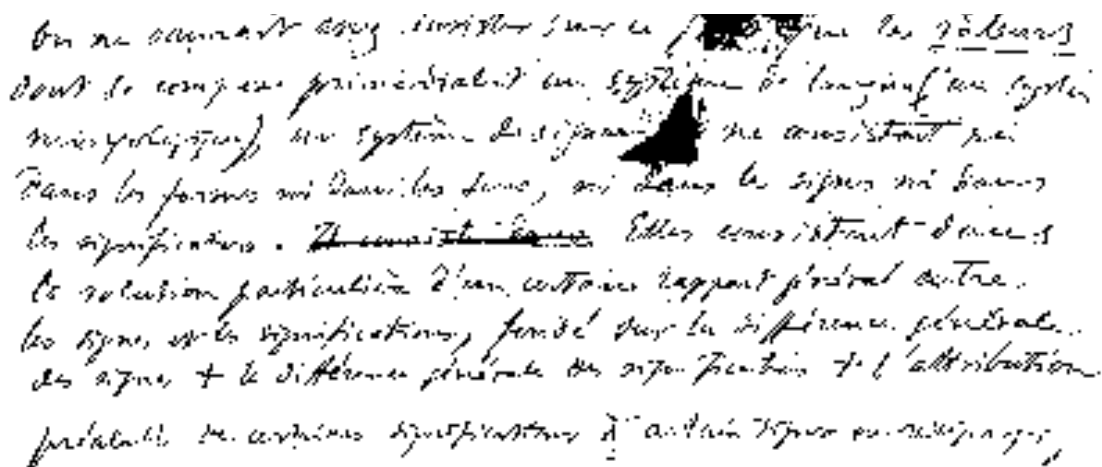 On ne saurait assez insister sur ce que les valeurs
dont se compose primordialement un système de langue (un système
morphologique), un système de signaux ne consistent ni
dans les formes ni dans les sens, ni dans les signes ni dans
les significations. Elles consistent dans
la solution particulière d'un certain rapport général entre
les signes et les significations, fondé sur la différence générale
des signes + la différence générale des significations + l'attribution
préalable de certaines significations à certains signes ou réciproquement,